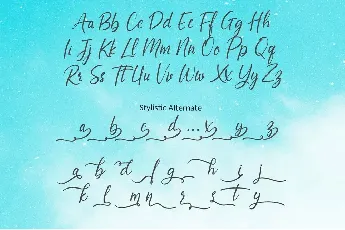 Aa Bb Cc Dd Ee Ff Gg Hh
Ii Jj Kk Ll Mm Nn Oo Pp Qq
Rr Ss Tt Uu Vv Ww Xx Yy Zz
Stylistic Alternate
a b c d ... x y z
a b d f g h i j
k l m n r s t y